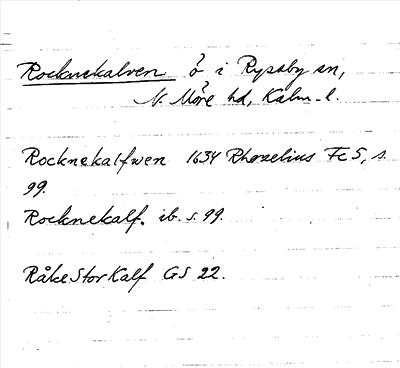 Rocknekalven ö i Ryssby sn,
N. Möre hd, Kalm. l.
Rocknekalfwen 1634 Rhezelius Fc5, s.
99.
Rocknekalf. ib. s. 99.
RåkeStorKalf GS 22.